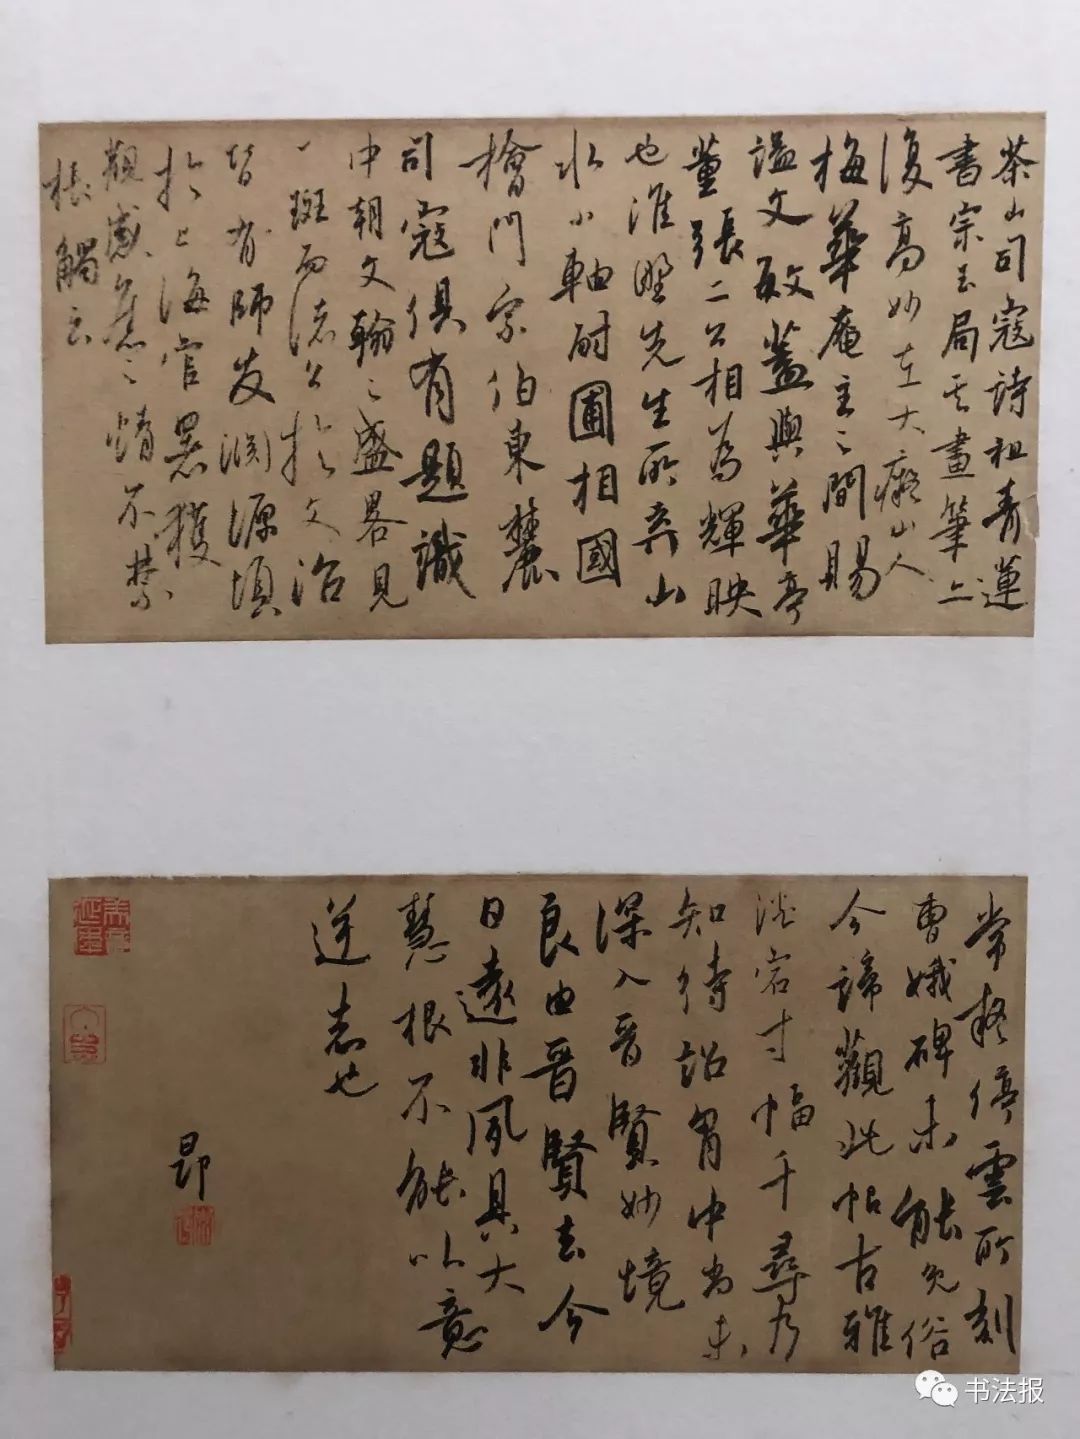 茶山司寇詩祖青蓮
書宗玉局其畫筆亦
復高妙在大癡山人
梅華庵主之間賜
諡文敏蓋與華亭
董張二公相為輝映
也淮壖先生所弆山
水小軸耐圃相國
檜門宗伯東麓
司寇俱有題識
中朝文翰之盛畧見
一斑而諸公於文治
皆有師友淵源頃
於上海官署獲
觀感舊之情不禁
棖觸云
常疑停雲所刻
曹娥碑未能免俗
今諦觀此帖古雅
淡宕寸幅千尋乃
知待詔胷中尚未
深入晉賢妙境
良由晉賢去今
日遠非夙具大
慧根不能以意
逆志也
昂
书法报